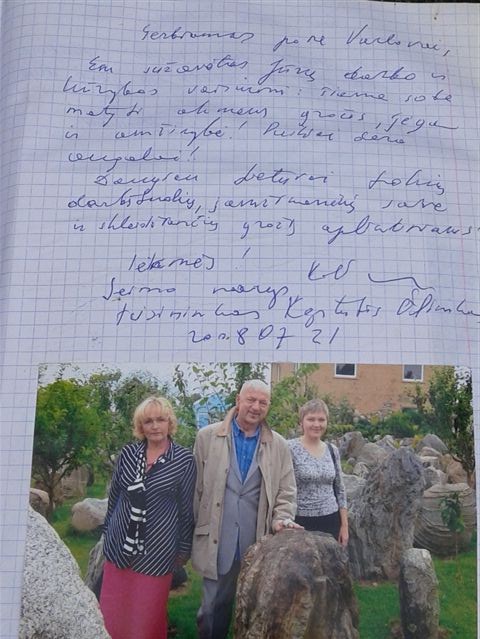 Gerbiamas pone Vaclovai,
Esu sužavėtas Jūsų darbo ir
kūrybos vaisiumi: šiame sode
matyti akmens grožis, jėga
ir amžinybė! Puikiai dera
augalai!
Daugiau Lietuvai tokių
darbščiuolių, save
ir skleidžiančių grožį aplinkiniams!
Sėkmės!
Seimo narys
teisininkas Kęstutis
2008 07 21